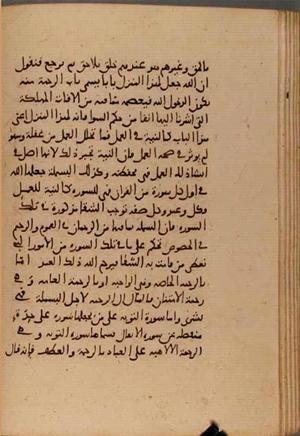 بالحق وغيرهم هو عندهم خلق بلا حق ثم نرجع فنقول
ان الله جعل لهذا المنزل بابا يسمى باب الرحمة منه
يكون الدخول اليه فيعصمه ما فيه من الافات المهلكة
التي اشرنا اليها انفا من حكم السوا فانه لهذا المنزل اعني
هذا الباب كالنية في العمل فما تخلل العمل من غفلة وسهو
لم يوثر في صحة العمل فان النية تجبر ذلك لانها اصل في
انشا ذلك العمل فهي تحفظه وكذلك البسملة جعلها الله
في اول كل سورة من القران فهي للسورة كالنية للعمل
فكل وعيد وكل صفة توجب الشقا مذكورة في تلك
السورة فان البسملة بما فيها من الرحمن في العموم والرحيم
في الخصوص تحكم على ما في تلك السورة من الامور التي
تعطي من قامت به الشقا فيرحم الله ذلك العبد اما
بالرحمة الخاصة وهي الواجبة او بالرحمة العامة وهي
رحمة الامتنان فالمآل الى الرحمة لاجل البسملة فهي
بشرى واما سورة التوبة على من يجعلها سورة على حدة
منفصلة عن سورة الانفال فسماها سورة التوبة وهي
الرحمة الالاهية على العباد بالرحمة والعطف فانه قال